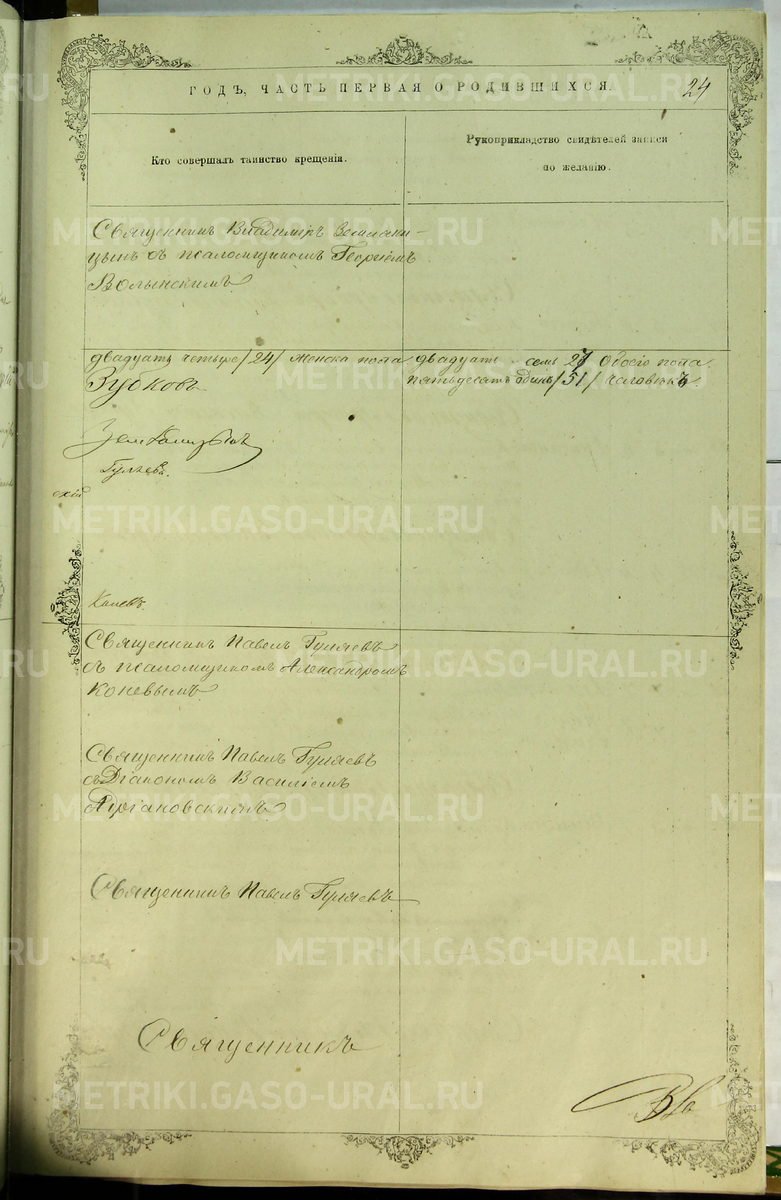 ГОДЪ, ЧАСТЬ ПЕРВАЯ О РОДИВШИХСЯ.
24
Кто совершалъ таинство крещенія.
Рукоприкладство свидѣтелей записи
по желанію.
Священникъ Владиміръ Земляни-
цынъ съ псаломщикомъ Георгіемъ
Волынскимъ
двадцать четыре /24/ женска пола
двадцать семь 27 обоего пола
Зубковъ
пятьдесятъ одинъ /51/ человѣкъ.
Гуляевъ.
скій
Коневъ.
Священникъ Павелъ Гуляевъ
съ псаломщикомъ Александромъ
Коневымъ
Священникъ Павелъ Гуляевъ
съ Діакономъ Василіемъ
Священникъ Павелъ Гуляевъ
Священникъ
METRIKI.GASO-URAL.RU